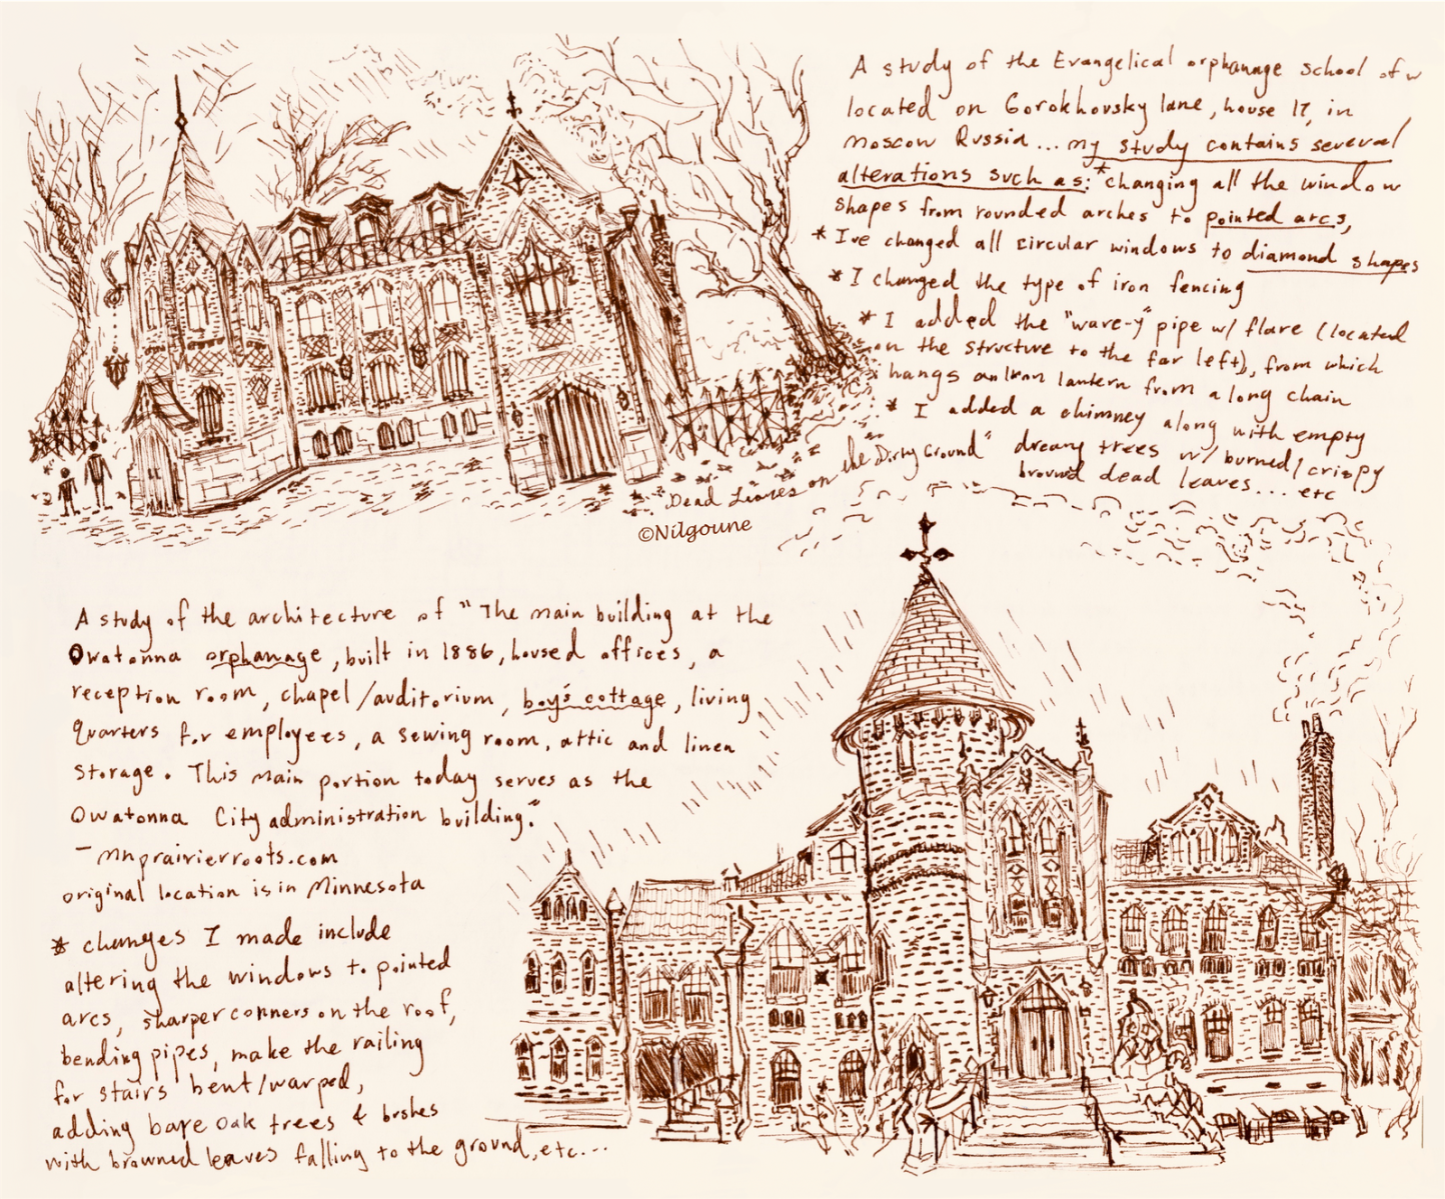 A study of the Evangelical orphanage school of
located on Gorokhovsky lane, house 17, in
moscow Russia... my study contains several
alterations such as: *changing all the window
shapes from rounded arches to pointed arcs,
* I've changed all circular windows to diamond shapes
* I changed the type of iron fencing
* I added the "wave-y" pipe w/ flare (located
on the structure to the far left), from which
hangs an Iron lantern from a long chain
* I added a chimney along with empty
dreary trees w/ burned/crispy
browned dead leaves... etc
Dead Leaves on the "Dirty Ground"
©Nilgoune
A study of the architecture of "The main building at the
Owatonna orphanage, built in 1886, housed offices, a
reception room, chapel/auditorium, boy's cottage, living
quarters for employees, a sewing room, attic and linen
storage. This main portion today serves as the
Owatonna City administration building."
- mnprairierroots.com
original location is in Minnesota
* changes I made include
altering the windows to pointed
arcs, sharper corners on the roof,
bending pipes, make the railing
for stairs bent/warped,
adding bare oak trees & bushes
with browned leaves falling to the ground, etc...